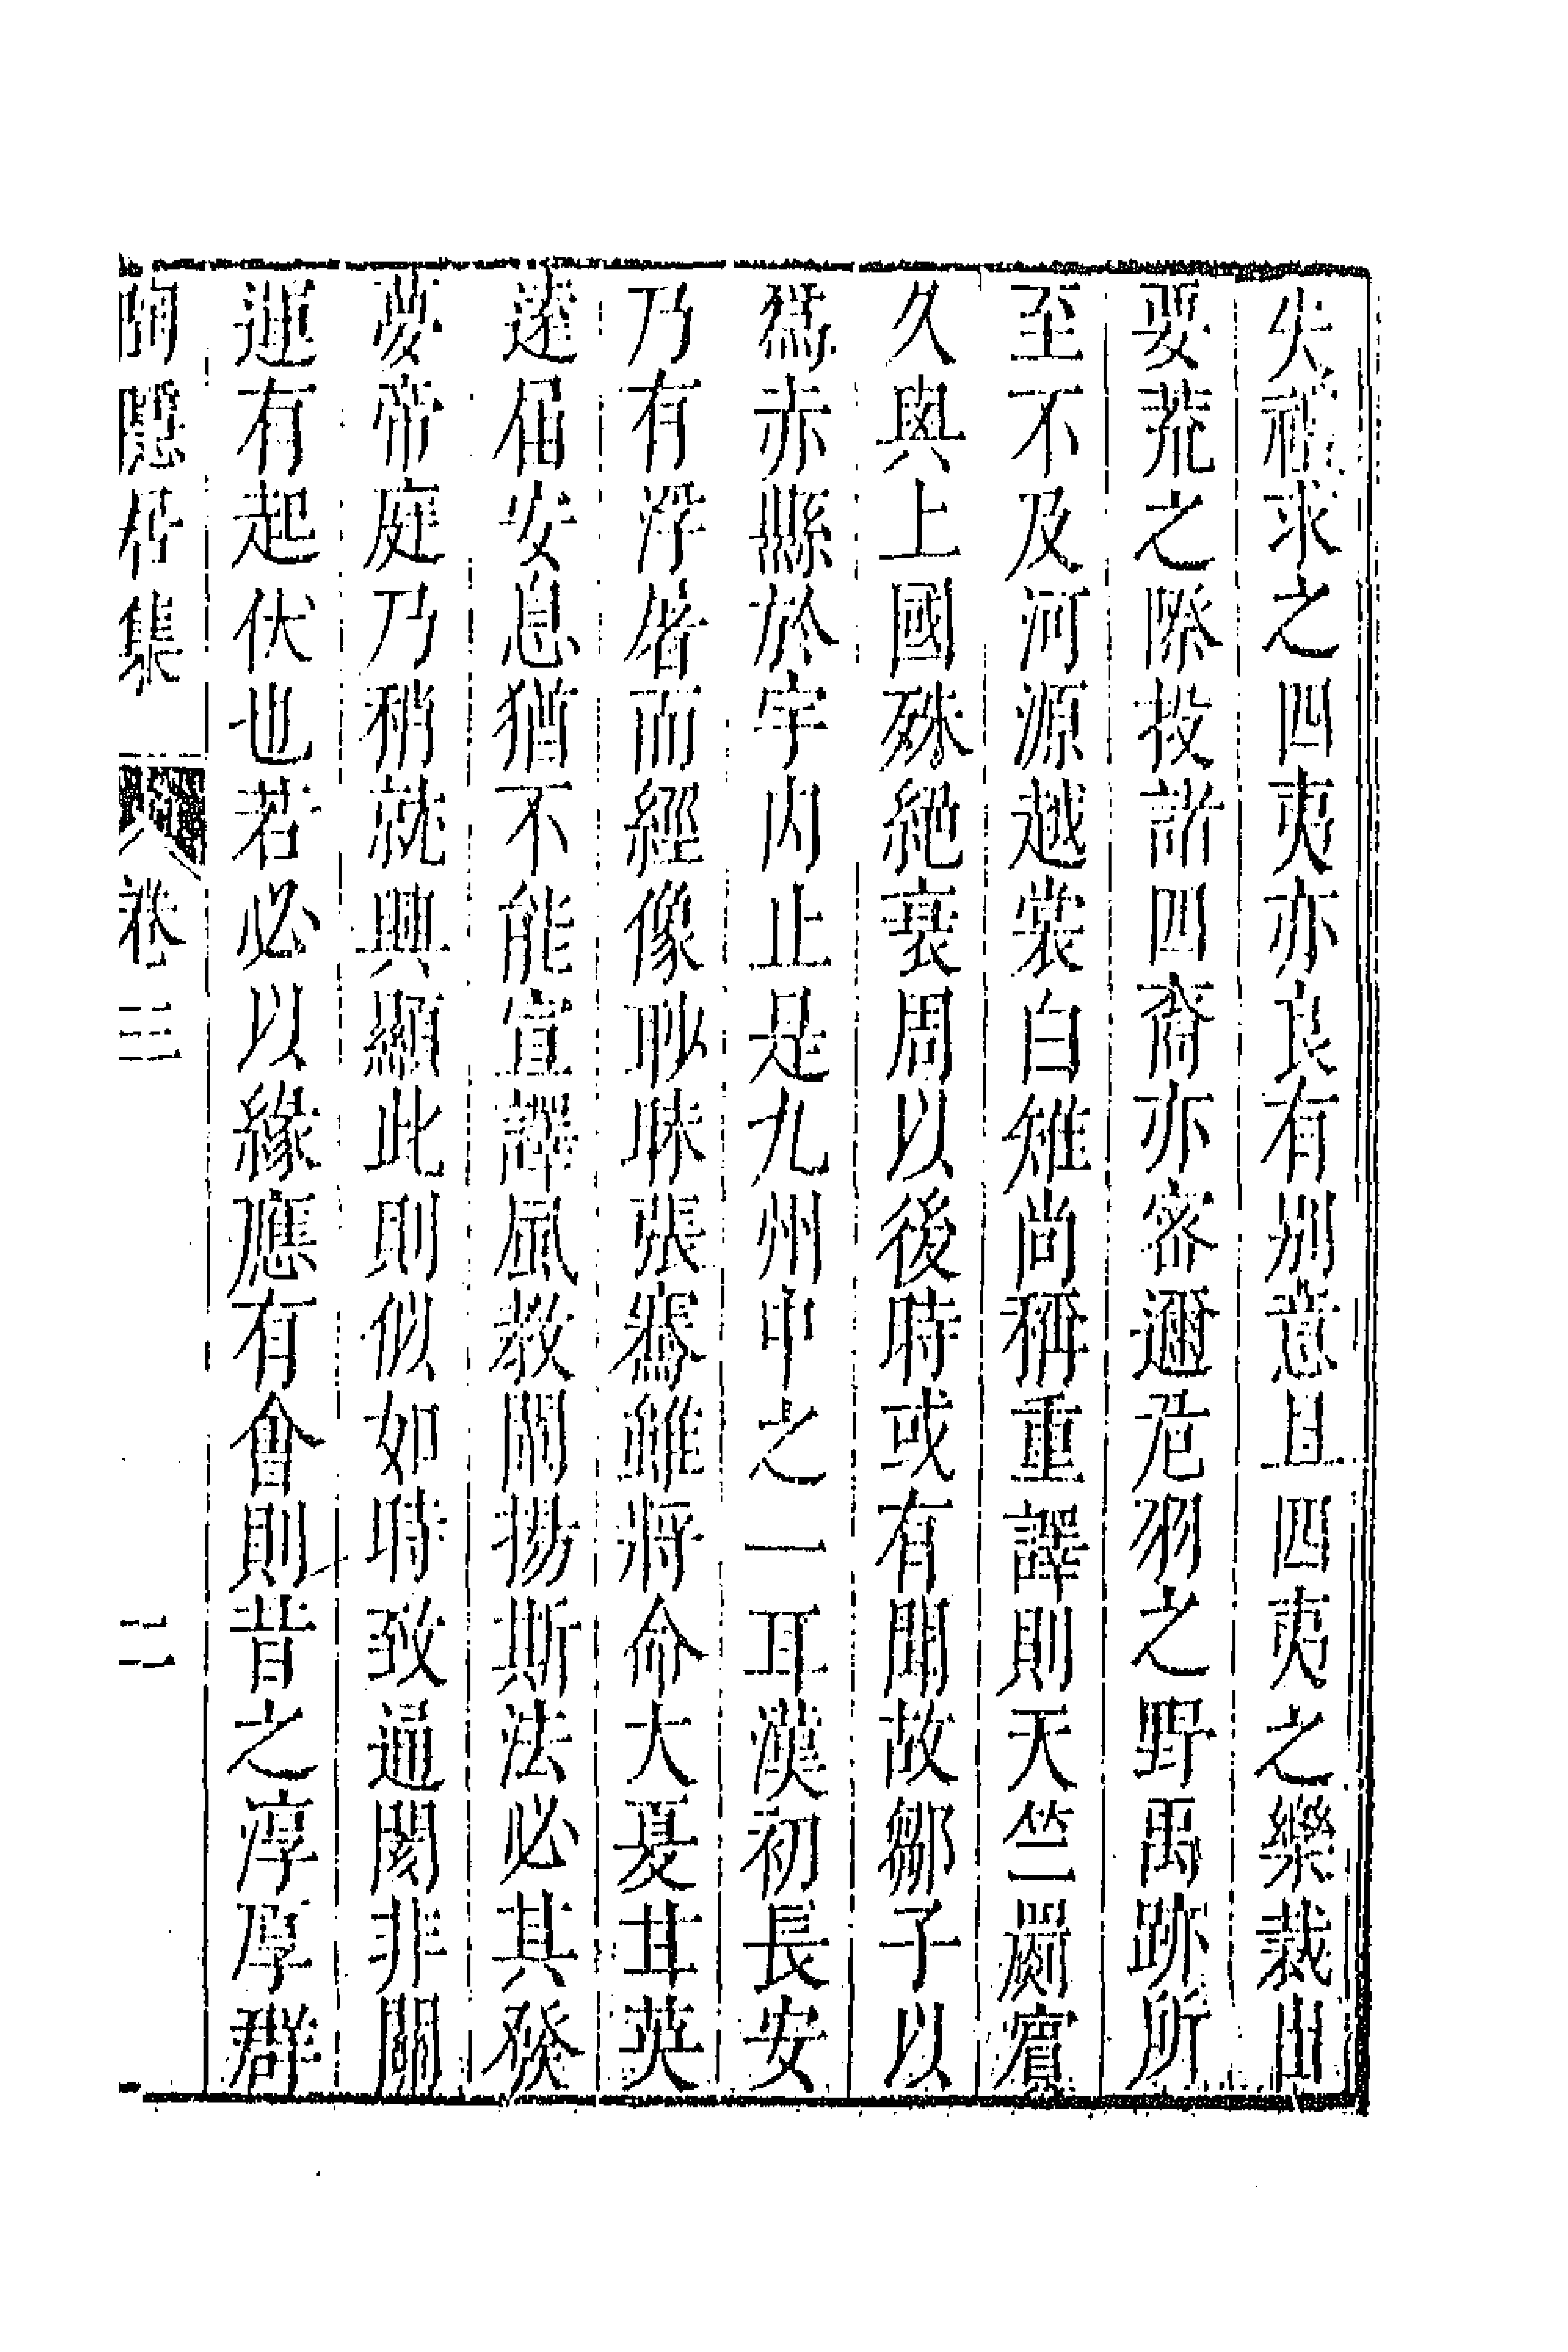 失禮求之四夷亦良有别意且四夷之樂裁出
要荒之際投諸四裔亦密邇危羽之野禹跡所
至不及河源越裳白雉尚稱重譯則天竺罽賓
久與上國殊絶衰周以後時或有聞故鄒子以
爲赤縣於宇内止是九州中之一耳漢初長安
乃有浮屠而經像眇昧張騫雖將命大夏甘英
遠屆安息猶不能宣譯風教闡揚斯法必其發
夢帝庭乃稍就興顯此則似如時致通閡非關
運有起伏也若必以緣應有會則昔之淳厚群
陶隱居集 卷 三 二